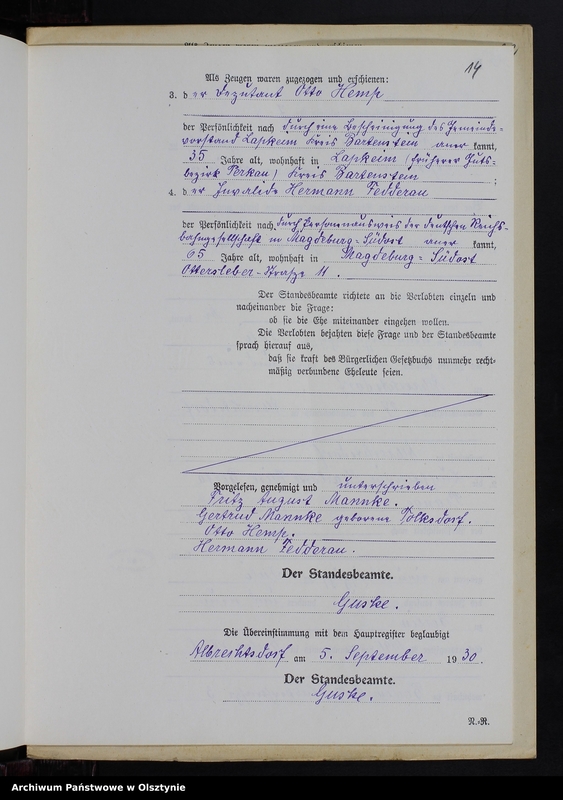 14
Als Zeugen waren zugezogen und erschienen:
3. der Deputant Otto Hemp
der Persönlichkeit nach durch eine Bescheinigung des Gemeinde-
vorstand Lapkeim Kreis Bartenstein aner kannt,
35 Jahre alt, wohnhaft in Lapkeim (früherer Guts-
bezirk Perkau) Kreis Bartenstein ;
4. der Invalide Hermann Fedderau
der Persönlichkeit nach durch Personenausweis der deutschen Reichs-
bahngesellschaft in Magdeburg-Südost aner kannt,
65 Jahre alt, wohnhaft in Magdeburg-Südost
Ottersleber-Straße 11.
Der Standesbeamte richtete an die Verlobten einzeln und
nacheinander die Frage:
ob sie die Ehe miteinander eingehen wollen.
Die Verlobten bejahten diese Frage und der Standesbeamte
sprach hierauf aus,
daß sie kraft des Bürgerlichen Gesetzbuchs nunmehr recht-
mäßig verbundene Eheleute seien.
Vorgelesen, genehmigt und unterschrieben
Fritz August Mannke.
Gertrud Mannke geborene Polksdorf.
Otto Hemp.
Hermann Fedderau.
Der Standesbeamte.
Guske.
Die Übereinstimmung mit dem Hauptregister beglaubigt
Albrechtsdorf am 5. September 1930.
Der Standesbeamte.
Guske.
N.-R.
Archiwum Państwowe w Olsztynie